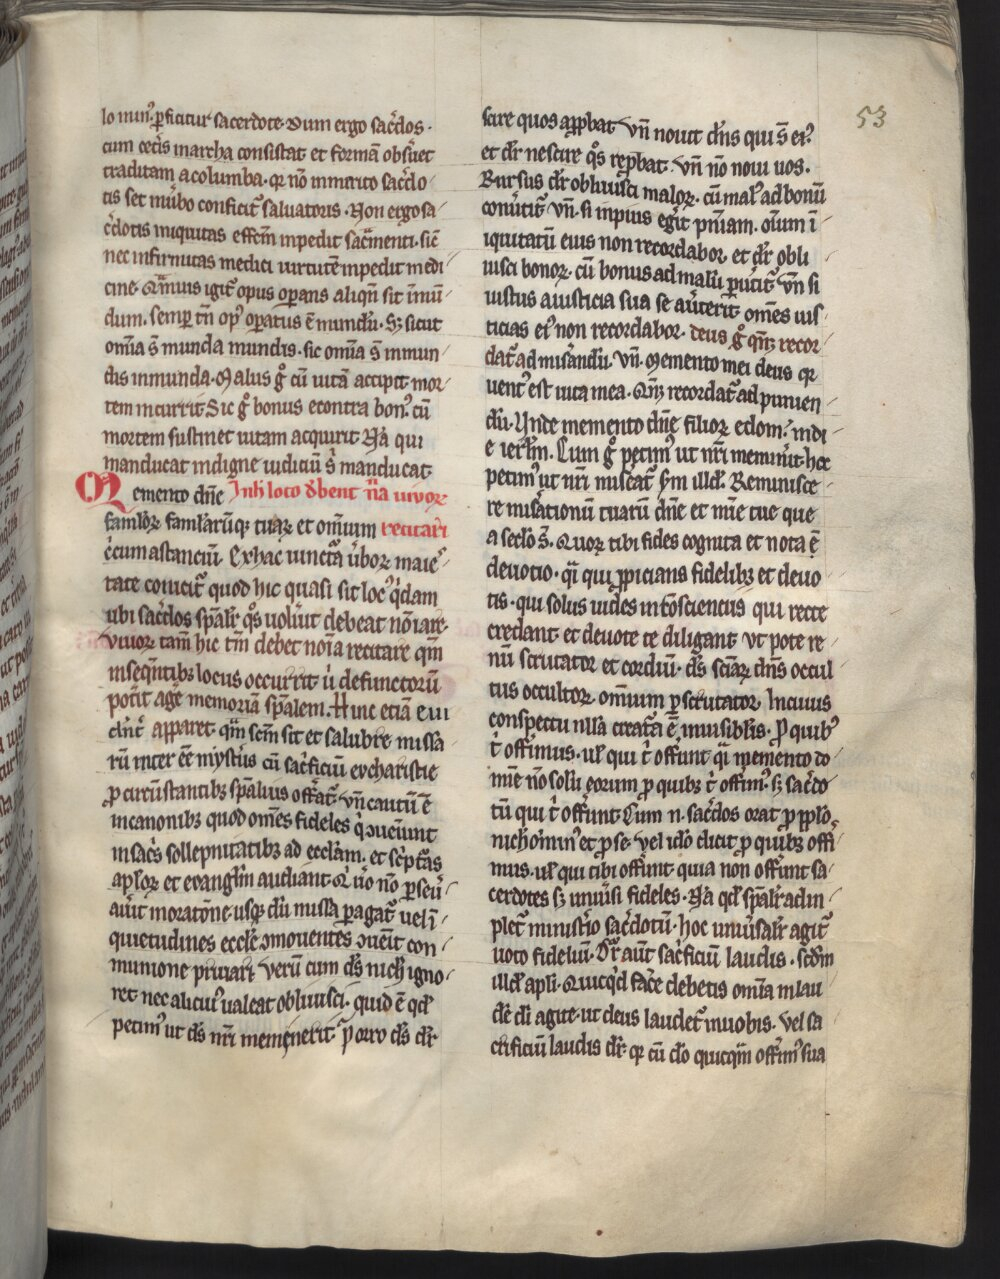 53
lo min᷒ ꝑficitur sacerdote. Dum ergo sac̄dos.
cum cet̄is in archa consistat et formā obseruet
traditam a columba. qꝛ nō inmirito sac̄do
tis set niuibo conficit᷑ saluatoris. Non ergo sa
c̄dotis iniquitas effcm̄ inpedit sac̄menti. sic̄
nec infirmitas medici uirtutē inpedit medi
cine. Q̄muis igit᷑ opus oꝑans aliqn̄ sit inmū
dum. semꝑ tn̄ op᷒ oꝑatus ē mundū. Sꝫ sicut
omīa s̄ munda mundis. sic omīa s̄ inmun
dis inmunda. Malus g̊ cū uitā accipit mor
tem incurrit. Sic g̊ bonus econtra bon᷒ cū
mortem sustinet uitam acquirit. Nā qui
manducat indigne iudiciū s̄ manducat
Memento dn̄e In h̄ loco d̄bent n̄a uiuoꝝ
famloꝝ famlarūqꝫ tuaꝝ et omnium recitari
c̄cum astanciū. Ex hac iuncta ūboꝝ maie᷒
tate conicit᷑ quod hic quasi sit loc᷒ q̇dam
ubi sac̄dos spāl̄r q̊s uolūit debeat nōiare
viuoꝝ tam̄ hic tm̄ debet nōia recitare qm̄
inseqn̄tibꝫ locus occurrit ů defunctorū
pot̄it aḡe memoriā spāl̄em. Hinc etiā eui
dn̄t᷑ apparet. qm̄ sc̄m sit et salubre missa
rū inter ēe mysteriis cū sac̄ficiū evcharistie
ꝓ circūstantibꝫ spālius offerat᷑. vn̄ cautū ē
in canonibꝫ quod om̄es fideles q̇ ꝯueniunt
in sac̄s sollepnitatibꝫ ad ecclam̄. et sc̄pt̄as
aploꝝ et evangliū audiant. Qi ůo nō ꝑseū
aūit in orat̄one usqꝫ dū missa ꝑagat᷑ uel ī
quietudines eccle ꝯmouentes ꝯuēit con
munione priuari. Verū cum ds̄ nich̄ igno
ret nec alicui᷒ ualeat obliuisci. quid ē qd̄
petim᷒ ut ds̄ nr̄i memīnerit. Porro ds̄ dr̄
scire quos app̄bat. vn̄ nouit dn̄s qui s̄ ei᷒.
et dr̄ nescire q̊s rep̄bat. vn̄ nō noui uos.
Rursus dr̄ obliuisci maloꝝ. cū mal᷒ ad bonū
conūtit᷑. vn̄. si inpius eg̅it pn̄iam. oīum ī
iquitatū eius non recordabor. et dr̄ obli
uisci bonoꝝ. cū bonus ad malū ꝑūtit᷑. vn̄ si
iustus a iusticia sua se aūterit om̄es ius
ticias ei᷒ non recordabor. deus g̊ qn̄qꝫ recor
dat᷑ ad mis̄andū. vn̄. Memento mei deus qꝛ
uent᷒ est uita mea. Qn̄qꝫ recordat᷑ ad punien
dū. Vnde memento dn̄e filioꝝ edom. indi
e ierl̄m. Cum g̊ petim᷒ ut nr̄i meminit. hoc
petim᷒ ut nr̄i misēat᷑ s̄m illd̄. Reminisce
re mis̄ationū tuarū dn̄e et mīe tue que
a seclo s̄. Quoꝝ tibi fides cognita et nota ē
deuotio. q̄i qui ꝓpicians fidelibꝫ et deuo
tis. qui solus uides in cōsciencus qui recte
credant et deuote te diligant vt pote re
nū scrutator et cordiū. ds̄ sciaꝝ dn̄s occul
tus occultoꝝ omnium ꝑscrutator. In cuius
conspectu nllā creatā ē inuisiblis. Pro quibꝫ
t̊ offerimus. ul̄ qui t̊ offerunt q̄i memento do
mīe nō solū eorum ꝓ quibꝫ t̊ offerim᷒. sꝫ sac̄do
tū qui t̊ offerunt. Cum n. sac̄dos orat ꝓ pplo
nich̄omin᷒ et ꝓ se. Vel ido dicit ꝓ quibꝫ offi
mus. ul̄ qui tibi offerunt quia non offerunt sa
cerdotes sꝫ uniūsi fideles. Nā qd̄ spāl̄r adin
plet᷑ minist̄io sac̄dotū. hoc uniūsal̄r agit᷑
uoto fideliū. Dr̄ aūt sac̄ficiū laudis. scd̄m
illd̄ apl̄i. Quicq̇d fac̄e debetis omīa in lau
dē di agite. ut deus laudet᷑ in uobis. Vel sa
crificiū laudis dr̄. qꝛ cū dō quicqm̄ offerim᷒ sua